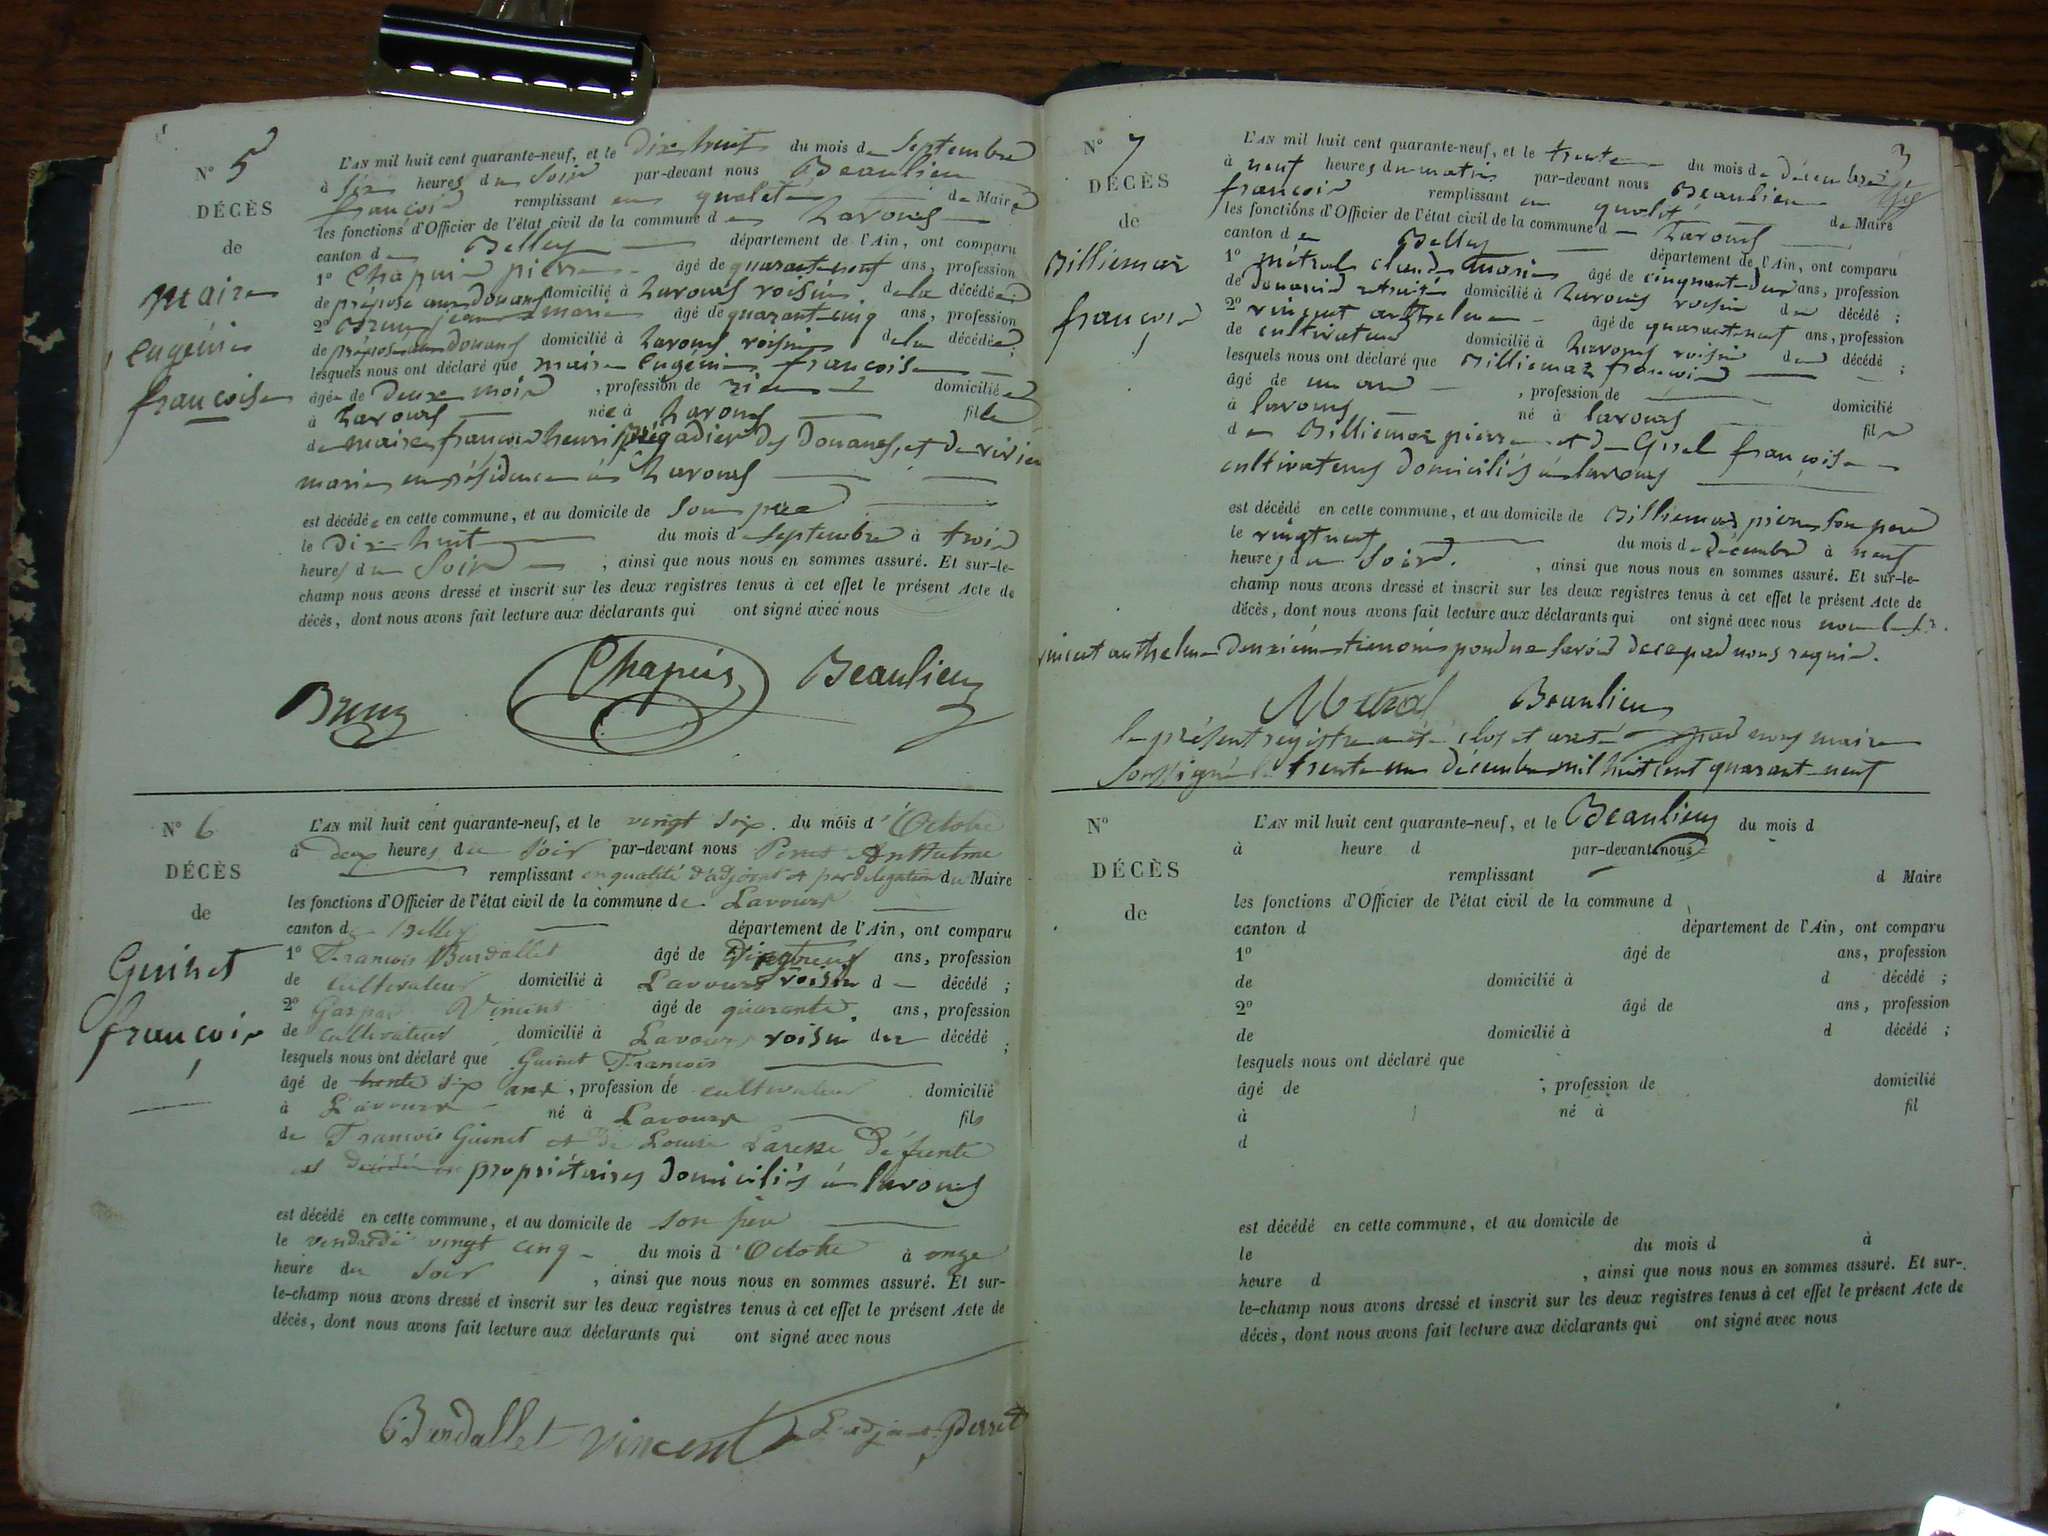 N° 5
DÉCÈS
de
Maire
Eugénie
françoise
L'AN mil huit cent quarante-neuf, et le dix huit du mois de Septembre
à six heures du Soir par-devant nous Beaulieu
françois remplissant en qualité de Maire
les fonctions d'Officier de l'état civil de la commune de Lavours
canton de Belley département de l'Ain, ont comparu
1° Chapuis pierre âgé de quarante neuf ans, profession
de préposé aux douanes domicilié à Lavours voisin de la décédée
2° Brun jean marie âgé de quarante cinq ans, profession
de préposé aux douanes domicilié à Lavours voisin de la décédée;
lesquels nous ont déclaré que maire Eugénie françoise
âgée de deux mois, profession de rien domiciliée
à Lavours née à Lavours fille
de maire françois henri Brigadier des douanes, et de
marie en résidence à Lavours
est décédée en cette commune, et au domicile de son père
le dix huit du mois de septembre à trois
heures du Soir, ainsi que nous nous en sommes assuré. Et sur-le-
champ nous avons dressé et inscrit sur les deux registres tenus à cet effet le présent Acte de
décès, dont nous avons fait lecture aux déclarants qui ont signé avec nous
Chapuis Beaulieu
Brun
N° 6
DÉCÈS
de
Guinet
françois
L'AN mil huit cent quarante-neuf, et le vingt six du mois d'Octobre
à deux heures du soir par-devant nous Perret Anthelme
remplissant en qualité d'adjoint et par délégation du Maire
les fonctions d'Officier de l'état civil de la commune de Lavours
canton de Belley département de l'Ain, ont comparu
1° François Burdallet âgé de ans, profession
de cultivateur domicilié à Lavours voisin d décédé;
2° Gaspar Vincent âgé de quarante ans, profession
de cultivateur domicilié à Lavours voisin du décédé;
lesquels nous ont déclaré que Guinet François
âgé de trente six ans, profession de cultivateur domicilié
à Lavours né à Lavours fils
de François Guinet et de Louise défunte
et propriétaires domiciliés à lavours
est décédé en cette commune, et au domicile de son père
le vendredi vingt cinq du mois d'Octobre à onze
heure du soir, ainsi que nous nous en sommes assuré. Et sur-
le-champ nous avons dressé et inscrit sur les deux registres tenus à cet effet le présent Acte de
décès, dont nous avons fait lecture aux déclarants qui ont signé avec nous
Burdallet Vincent L'adjoint Perret
3
N° 7
DÉCÈS
de
Billiemaz
françois
L'AN mil huit cent quarante-neuf, et le trente du mois de décembre
à neuf heures du matin par-devant nous Beaulieu
françois remplissant en qualité de Maire
les fonctions d'Officier de l'état civil de la commune d Lavours
canton de Belley département de l'Ain, ont comparu
1° métral claude marie âgé de cinquante deux ans, profession
de douanier retraité domicilié à Lavours voisin du décédé;
2° vincent anthelme âgé de quarante neuf ans, profession
de cultivateur domicilié à Lavours voisin du décédé;
lesquels nous ont déclaré que Billiemaz françois
âgé de un an, profession de domicilié
à lavours né à lavours fils
de Billiemaz pierre et de françoise
cultivateurs domiciliés à lavours
est décédé en cette commune, et au domicile de Billiemaz pierre son père
le vingt neuf du mois de décembre à neuf
heures du soir, ainsi que nous nous en sommes assuré. Et sur-le-
champ nous avons dressé et inscrit sur les deux registres tenus à cet effet le présent Acte de
décès, dont nous avons fait lecture aux déclarants qui ont signé avec nous non le Sr.
vincent anthelme deuxième témoin pour ne savoir de ce par nous requis.
Métral Beaulieu
le présent registre a été clos et arrêté par nous maire
soussigné le trente un décembre mil huit cent quarante neuf
Beaulieu
N°
DÉCÈS
de
L'AN mil huit cent quarante-neuf, et le du mois d
à heure d par-devant nous
remplissant d Maire
les fonctions d'Officier de l'état civil de la commune d
canton d département de l'Ain, ont comparu
1° âgé de ans, profession
de domicilié à d décédé;
2° âgé de ans, profession
de domicilié à d décédé;
lesquels nous ont déclaré que
âgé de ; profession de domicilié
à né à fil
d
est décédé en cette commune, et au domicile de
le du mois d à
heure d , ainsi que nous nous en sommes assuré. Et sur-
le-champ nous avons dressé et inscrit sur les deux registres tenus à cet effet le présent Acte de
décès, dont nous avons fait lecture aux déclarants qui ont signé avec nous